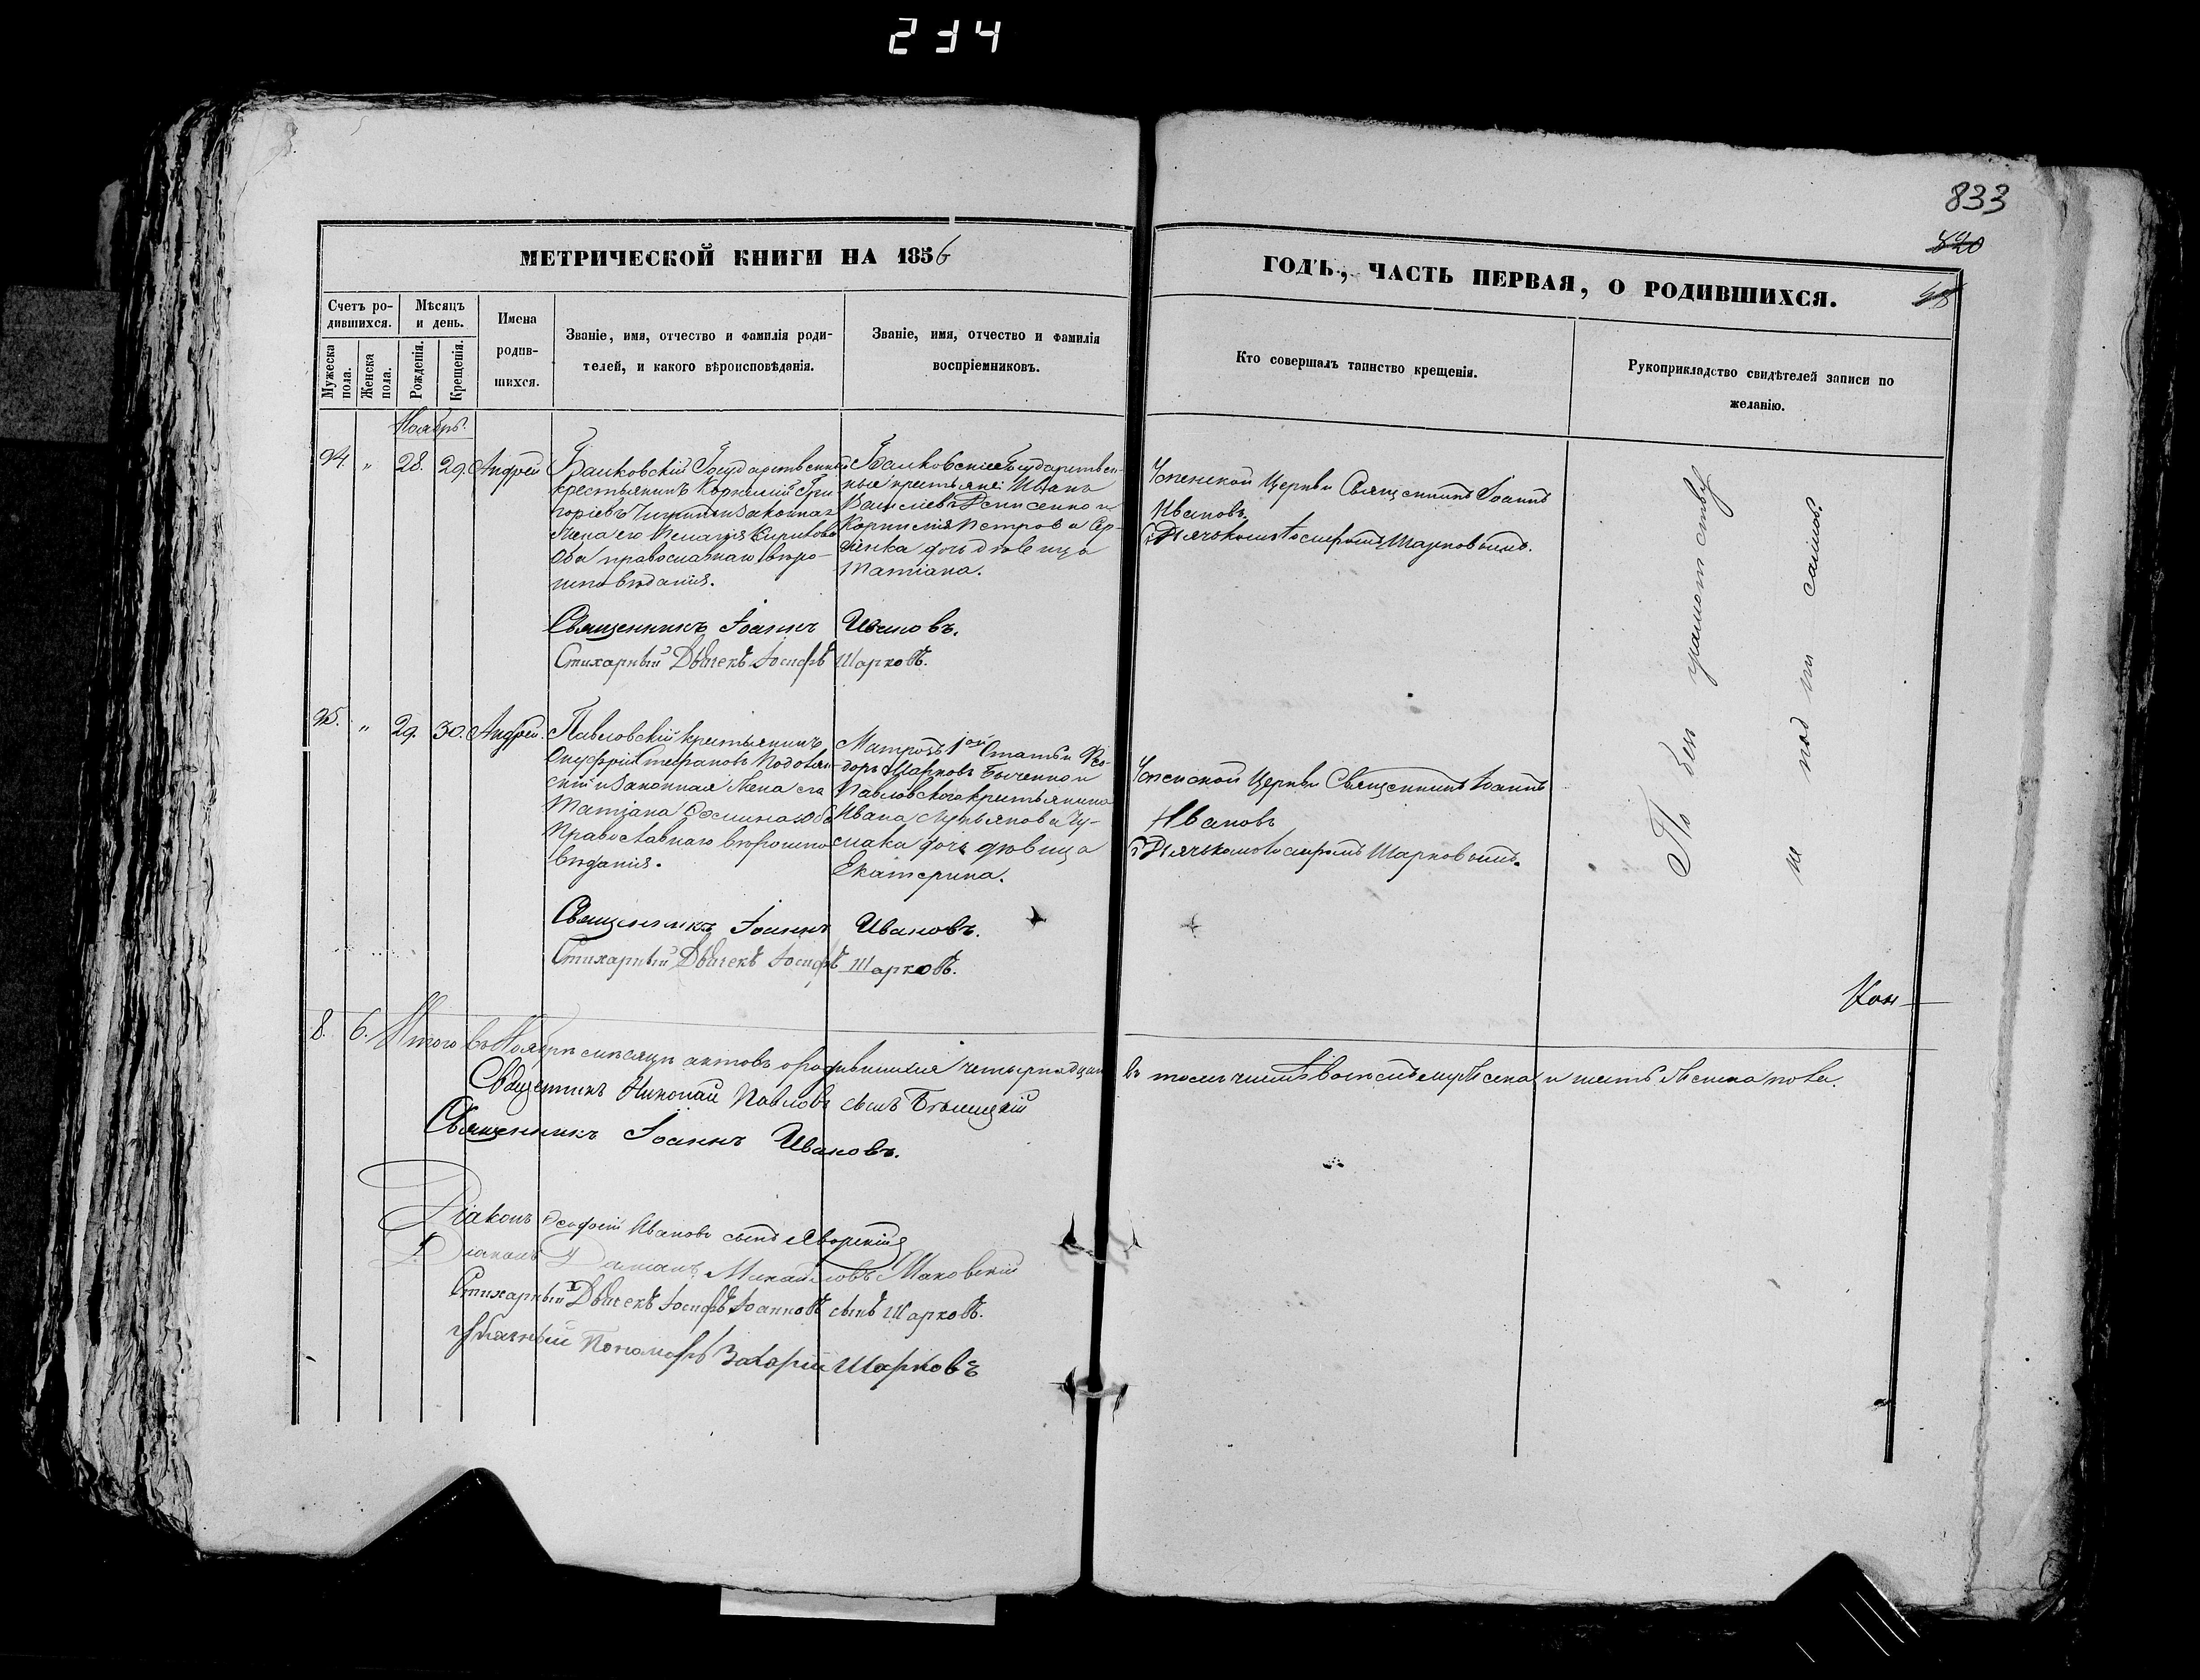 234
833
820
МЕТРИЧЕСКОЙ КНИГИ НА 1856
ГОДЪ, ЧАСТЬ ПЕРВАЯ, О РОДИВШИХСЯ.
Счетъ ро-
дившихся.
Мѣсяцъ
и день.
Мужеска
пола.
Женска
пола.
Рожденія.
Крещенія.
Имена
родив-
шихся.
Званіе, имя, отчество и фамилія роди-
телей, и какого вѣроисповѣданія.
Званіе, имя, отчество и фамилія
воспріемниковъ.
Кто совершалъ таинство крещенія.
Рукоприкладство свидѣтелей записи по
желанію.
Ноябрь.
94. " 28. 29. Андрей
Государственный
крестьянинъ Корнилій Гри
горіевъ законная
жена его Пелагія Кирилова
оба православнаго вѣро-
исповѣданія.
Государствен-
ные крестьяне: Иванъ
Василіевъ Денисенко и
Корнилія Петрова
дочь дѣвица
Татіана.
Успенской Церкви Священникъ Іоаннъ
Ивановъ.
съ Дьячкомъ Іосифомъ Шарковымъ.
Священникъ Іоаннъ Ивановъ.
Стихарный Дьячекъ Іосифъ Шарковъ.
95. " 29. 30. Андрей.
Павловскій крестьянинъ
Онуфрій Стефановъ
и законная жена его
Татіана оба
Православнаго вѣроиспо
вѣданія.
Матрозъ 1ой Статьи Ѳео-
доръ Марковъ и
Павловскаго крестьянина
Ивана Лукьянова Чу-
мака дочь дѣвица
Екатерина.
Успенской Церкви Священникъ Іоаннъ
Ивановъ
съ Дьячкомъ Іосифомъ Шарковымъ.
Священникъ Іоаннъ Ивановъ.
Стихарный Дьячекъ Іосифъ Шарковъ.
По без грамотству
не под пи сались.
8. 6. Итого въ Ноябрѣ мѣсяцѣ актовъ о родившихся четырнадцать
въ томъ числѣ восемь мужеска и шесть женска пола.
Священникъ Николай Павловъ сынъ
Священникъ Іоаннъ Ивановъ.
Діаконъ Ѳеодосій Ивановъ сынъ Яворскій
Діаконъ Даміанъ Михайловъ Маковскій
Стихарный Дьячекъ Іосифъ Іоанновъ сынъ Шарковъ.
Пономарь Захарій Шарковъ